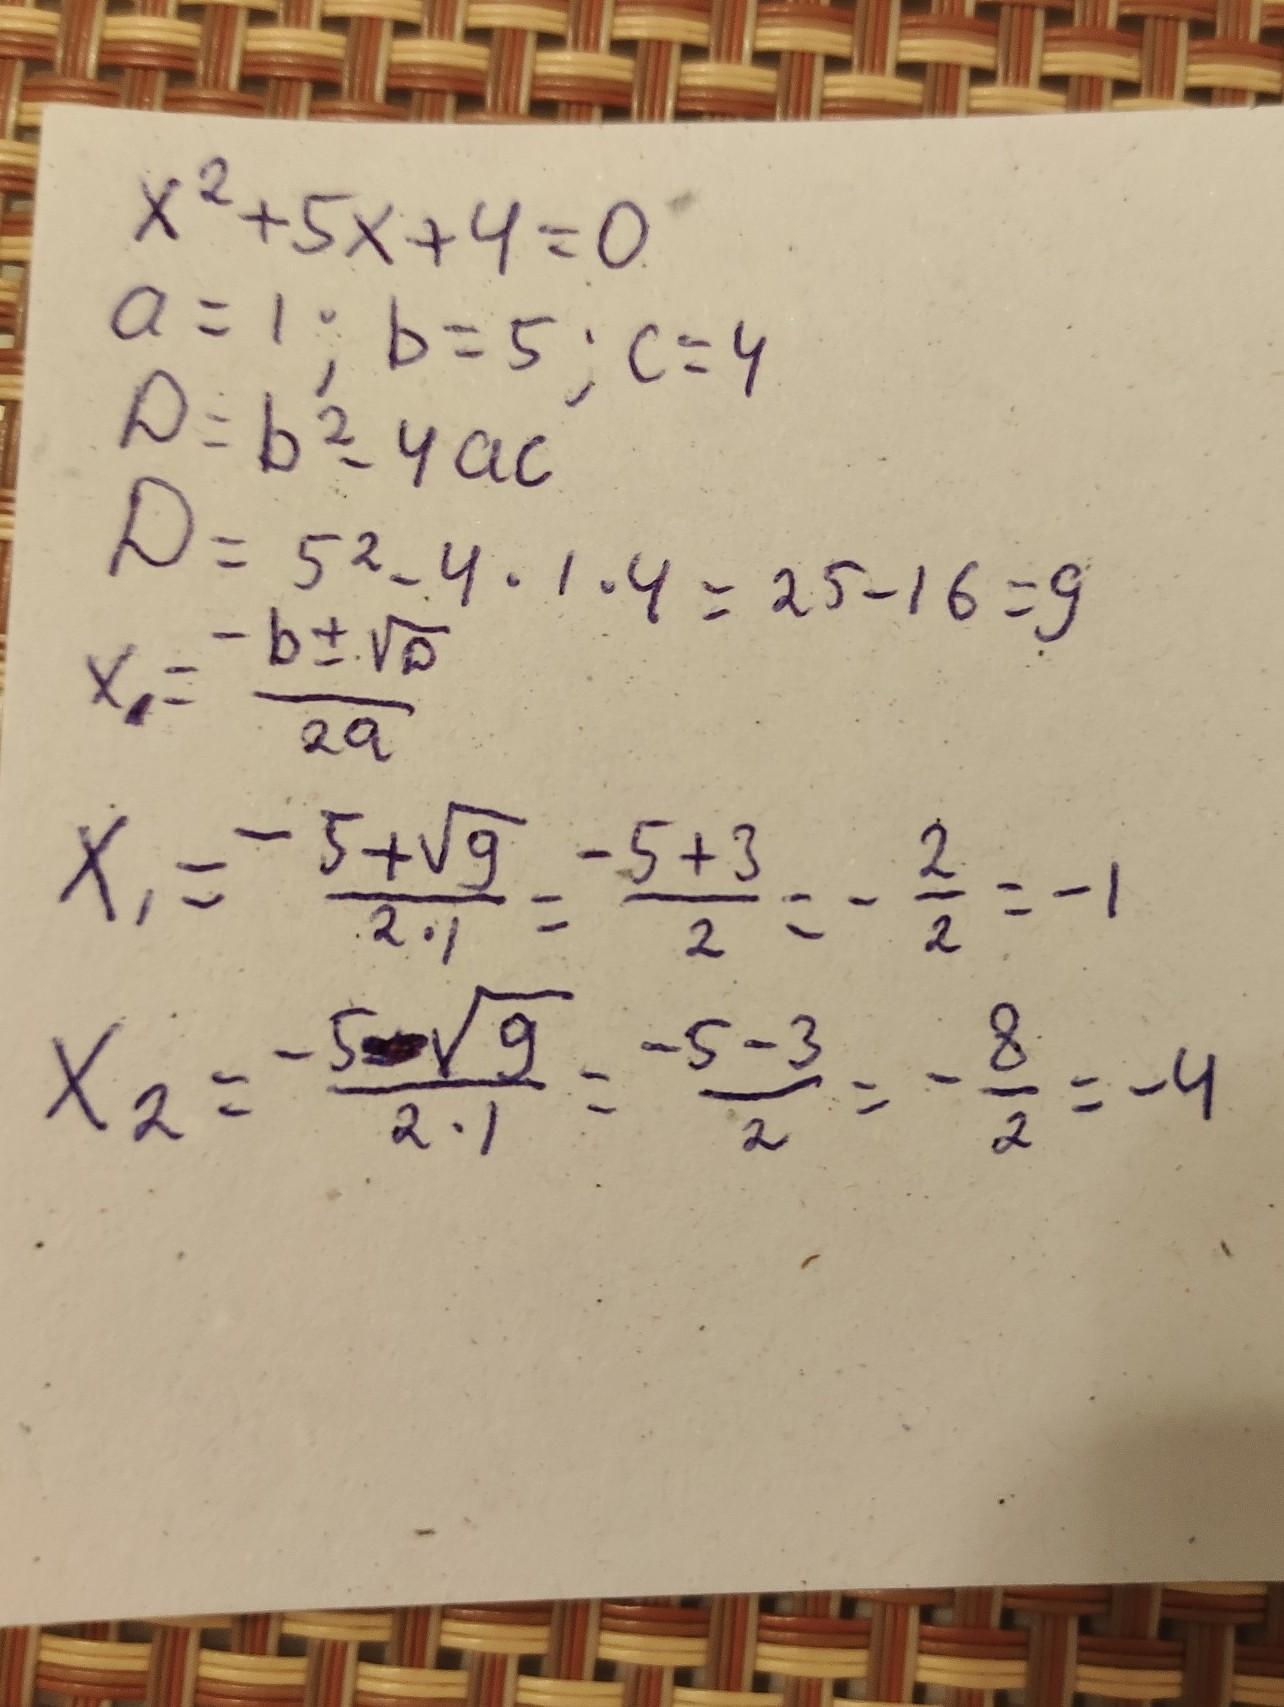 x²+5x+4=0
a=1; b=5; c=4
D=b²-4ac
D=5²-4·1·4=25-16=9
x=(-b±√D)/(2a)
x₁=(-5+√9)/(2·1)=(-5+3)/2=-2/2=-1
x₂=(-5-√9)/(2·1)=(-5-3)/2=-8/2=-4